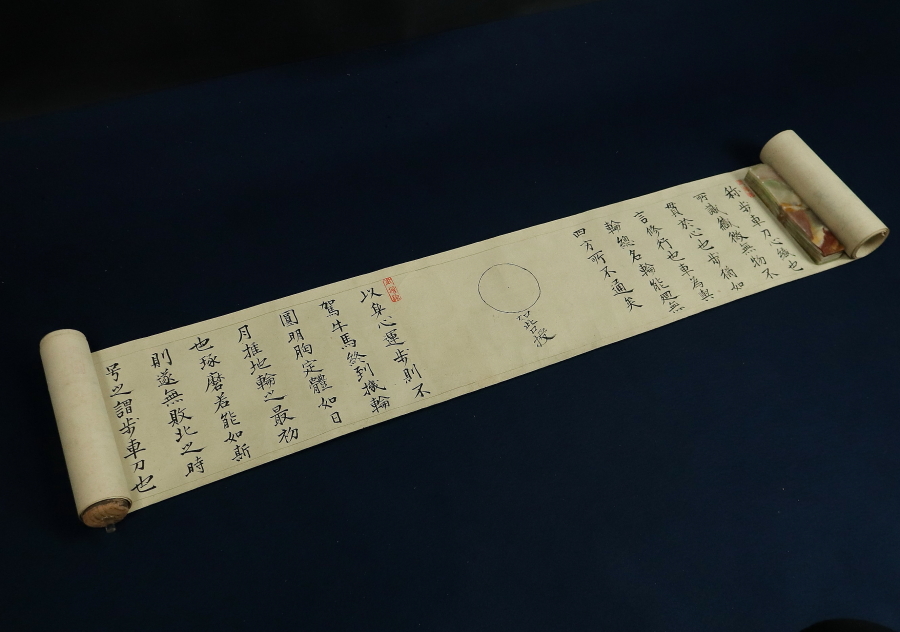 称步車刀心識也
所識緘微無物不
貫於心也步猶如
言修行也車為輿
輪總名輪能運無
四方所不通矣
口授
以身心運步則不
駕牛馬終到機輪
圓明胸定體如日
月推地輪之最初
也琢磨若能如斯
則遂無敗北之時
号之謂步車刀也